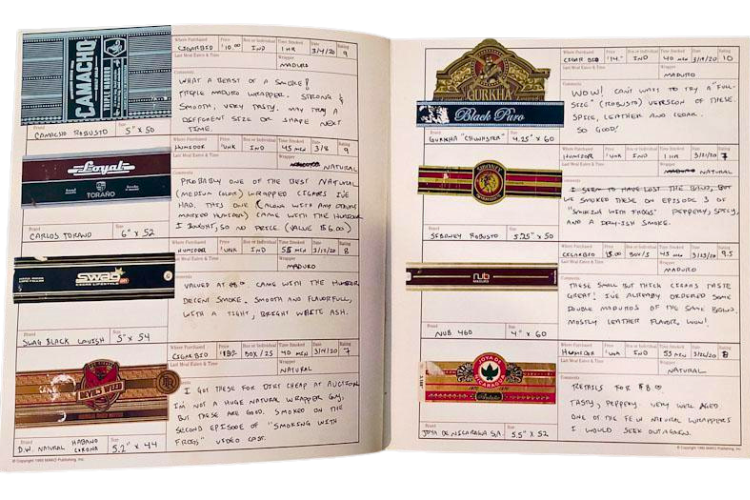 CAMACHO
TRIPLE MADURO
Where Purchased Price Box or Individual Time Smoked Date Rating
CIGARBID $10.00 IND 1 HR 3/4/20 9
Last Meal Eaten & Time Wrapper
MADURO
Comments
WHAT A BEAST OF A SMOKE!
TRIPLE MADURO WRAPPER. STRONG &
SMOOTH, VERY TASTY. MAY TRY A
DIFFERENT SIZE OR SHAPE NEXT
TIME.
Brand Size
CAMACHO ROBUSTO 5" x 50
Loyal
TORAÑO
Where Purchased Price Box or Individual Time Smoked Date Rating
HUMIDOR UNK IND 45 MIN 3/8 9
Last Meal Eaten & Time Wrapper
NATURAL
Comments
PROBABLY ONE OF THE BEST NATURAL
WRAPPED CIGARS I'VE
HAD. THIS ONE (ALONG WITH ANY OTHERS
MARKED HUMIDOR) CAME WITH THE HUMIDOR
I BOUGHT, SO NO PRICE (VALUE $6.00)
Brand Size
CARLOS TORANO 6" x 52
SWAG
Where Purchased Price Box or Individual Time Smoked Date Rating
HUMIDOR UNK IND 55 MIN 8
Last Meal Eaten & Time Wrapper
MADURO
Comments
VALUED AT CAME WITH THE HUMIDOR
DECENT SMOKE. SMOOTH AND FLAVORFULL,
WITH A TIGHT, BRIGHT WHITE ASH.
Brand Size
SWAG BLACK LAVISH 5" x 54
DEVIL'S WEED
Where Purchased Price Box or Individual Time Smoked Date Rating
CIGARBID BOX/25 40 MIN 7
Last Meal Eaten & Time Wrapper
NATURAL
Comments
I GOT THESE FOR DIRT CHEAP AT AUCTION
I'M NOT A HUGE NATURAL WRAPPER GUY,
BUT THESE ARE GOOD. SMOKED ON THE
SECOND EPISODE OF "SMOKING WITH
FROGS" VIDEO CAST.
Brand Size
D.W. NATURAL HABANO CORONA 5.2" x 44
GURKHA
Black Puro
Where Purchased Price Box or Individual Time Smoked Date Rating
CIGAR BID IND 40 MIN 10
Last Meal Eaten & Time Wrapper
MADURO
Comments
WOW! CAN'T WAIT TO TRY A "FULL-
SIZE" (ROBUSTO) VERSION OF THESE.
SPICE, LEATHER AND CEDAR.
SO GOOD!
Brand Size
GURKHA 4.25" x 60
Where Purchased Price Box or Individual Time Smoked Date Rating
HUMIDOR UNK IND 1 HR 7
Last Meal Eaten & Time Wrapper
NATURAL
Comments
I SEEM TO HAVE LOST THE BAND, BUT
WE SMOKED THESE ON EPISODE 3 OF
"SMOKIN WITH FROGS" PEPPERY, SPICY,
AND A SMOKE.
Brand Size
SIBONEY ROBUSTO 5.25" x 50
nub
MADURO
Where Purchased Price Box or Individual Time Smoked Date Rating
CIGARBID 45 MIN 9.5
Last Meal Eaten & Time Wrapper
MADURO
Comments
THESE SMALL BUT THICK CIGARS TASTE
GREAT! I'VE ALREADY ORDERED SOME
DOUBLE MADUROS OF THE SAME BRAND.
MOSTLY LEATHER FLAVOR, WOW!
Brand Size
NUB 460 4" x 60
JOYA DE
NICARAGUA
Where Purchased Price Box or Individual Time Smoked Date Rating
HUMIDOR UNK IND 55 MIN 8
Last Meal Eaten & Time Wrapper
NATURAL
Comments
RETAILS FOR $8.00
TASTY, PEPPERY. VERY WELL AGED.
ONE OF THE FEW NATURAL WRAPPERS
I WOULD SEEK OUT AGAIN.
Brand Size
JOYA DE NICARAGUA 5.5" x 52